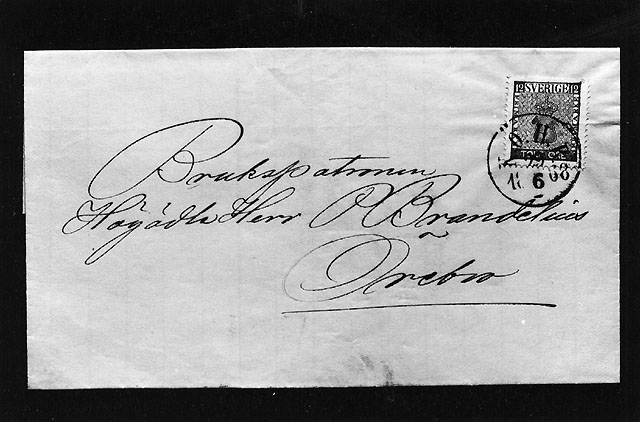 12 SVERIGE 12
TOLF ÖRE
6
Brukspatronen
Högädle Herr P Brandelius
Örebro